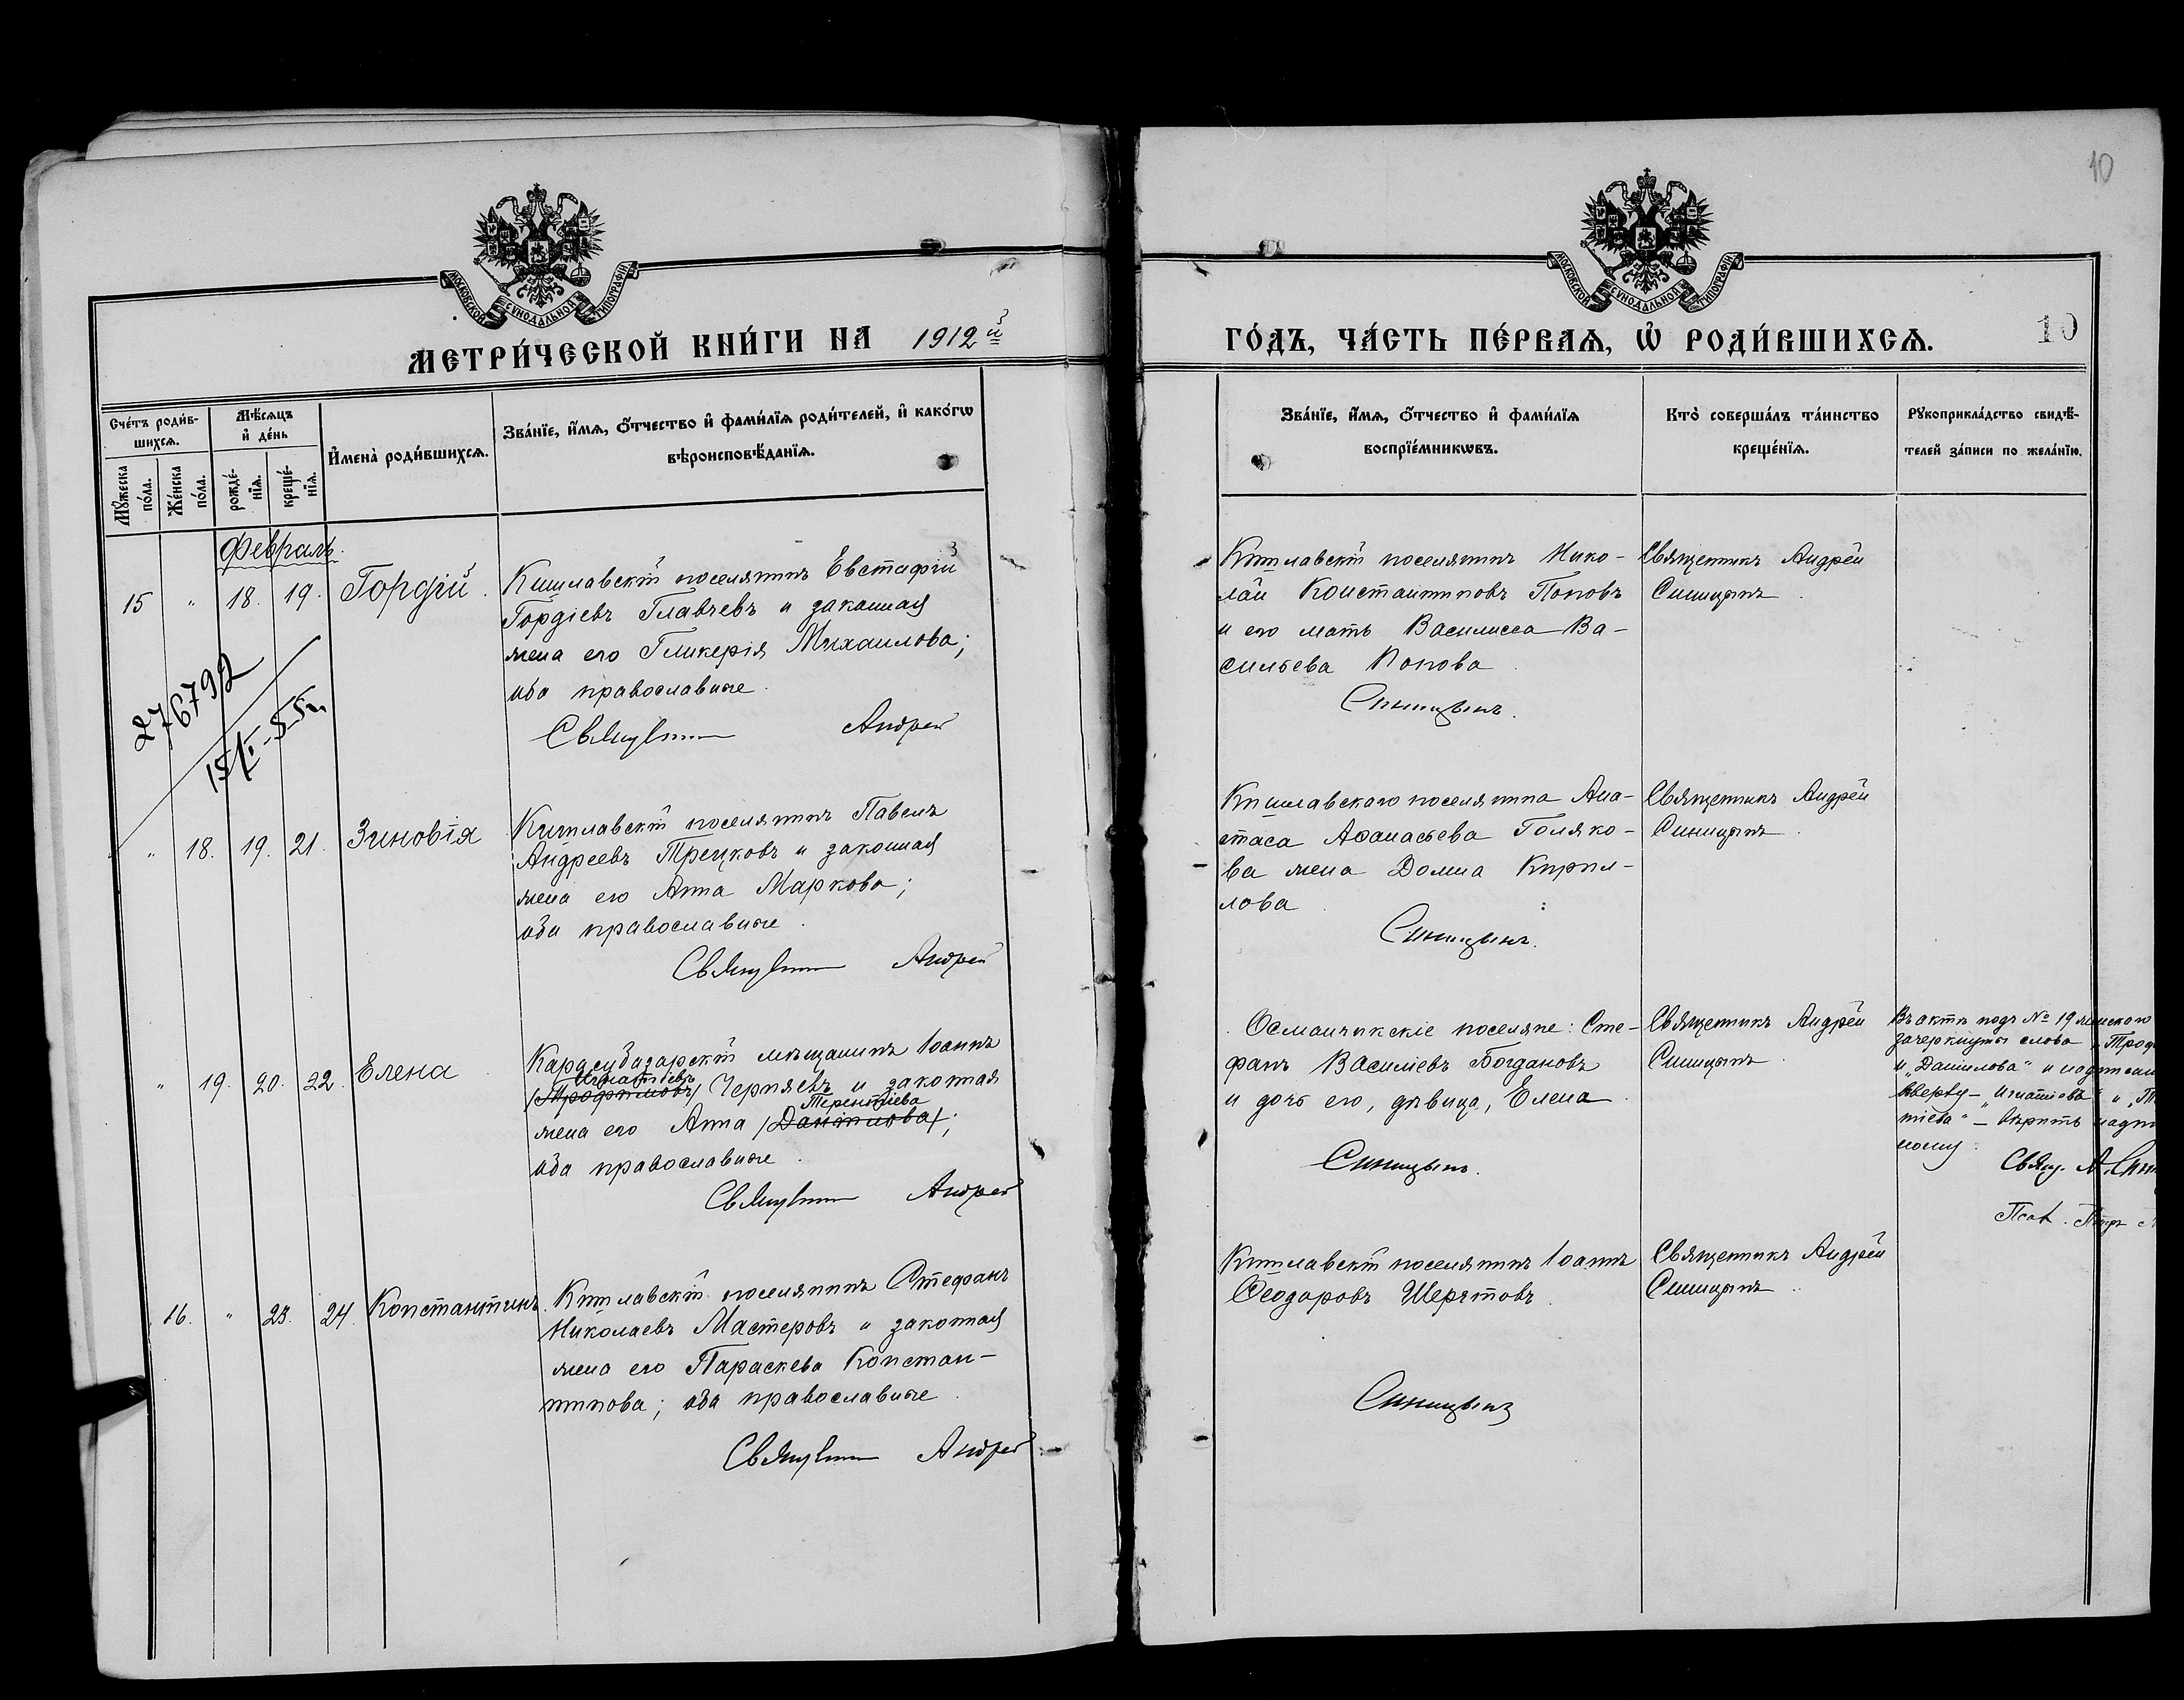 10
МОСКОВСКОЙ СѴНОДАЛЬНОЙ ТИПОГРАФІИ
МЕТРИ́ЧЕСКОЙ КНИ́ГИ НА 1912й
Сче́тъ роди́в-
шихсѧ.
Мѣ́сѧцъ
и҆ де́нь
Мꙋ́жеска
по́ла.
Же́нска
по́ла.
рожде́-
нїѧ.
креще́-
нїѧ.
И҆мена̀ роди́вшихсѧ.
Зва́нїе, и҆́мѧ, ѻ҆́тчество и҆ фами́лїѧ роди́телей, и҆ како́гѡ
вѣроисповѣ́данїѧ.
Февраль.
15 " 18. 19. Гордій.
Кишлавскій поселянинъ Евстафій
Гордіевъ Главчевъ и законная
жена его Гликерія Михаилова;
оба православные.
Священникъ Андрей
276792
15/X-55г.
" 18. 19. 21. Зиновія
Кишлавскій поселянинъ Павелъ
Андреевъ Трецковъ и законная
жена его Анна Маркова;
оба православные.
Священникъ Андрей
" 19. 20. 22. Елена
Карасубазарскій мѣщанинъ Іоаннъ
Игнатіевъ
/Трофимовъ/ Черняевъ и законная
Терентіева
жена его Анна /Данилова/;
оба православные.
Священникъ Андрей
16. " 23. 24. Константинъ.
Кишлавскій поселянинъ Стефанъ
Николаевъ Мастеровъ и законная
жена его Параскева Констан-
тинова; оба православные.
Священникъ Андрей
МОСКОВСКОЙ СѴНОДАЛЬНОЙ ТИПОГРАФІИ
ГО́ДЪ, ЧА́СТЬ ПЕ́РВАѦ, Ѡ҆ РОДИ́ВШИХСѦ.
10
Зва́нїе, и҆́мѧ, ѻ҆́тчество и҆ фами́лїѧ
воспрїе́мникѡвъ.
Кто̀ соверша́лъ та́инство
креще́нїѧ.
Рꙋкоприкла́дство свидѣ́-
телей за́писи по жела́нїю.
Кишлавскій поселянинъ Нико-
лай Константиновъ Поповъ
и его мать Василисса Ва-
сильева Попова.
Синицынъ.
Священникъ Андрей
Синицынъ.
Кишлавского поселянина Ана-
стаса Аѳанасьева Голяко-
ва жена Домна Кирил-
лова.
Синицынъ.
Священникъ Андрей
Синицынъ.
Османчикскіе поселяне: Сте-
фанъ Василіевъ Богдановъ
и дочь его, дѣвица, Елена.
Синицынъ.
Священникъ Андрей
Синицынъ.
Въ актѣ подъ № 19 женского
зачеркнуты слова „Троф
и „Данилова" и надписан
вверху – „Игнатіева" и „Т
тіева" – вѣрить надпи
ному.
Свящ. А. Син
Псал. Петръ
Кишлавскій поселянинъ Іоаннъ
Ѳеодоровъ Шерятовъ.
Синицынъ
Священникъ Андрей
Синицынъ.